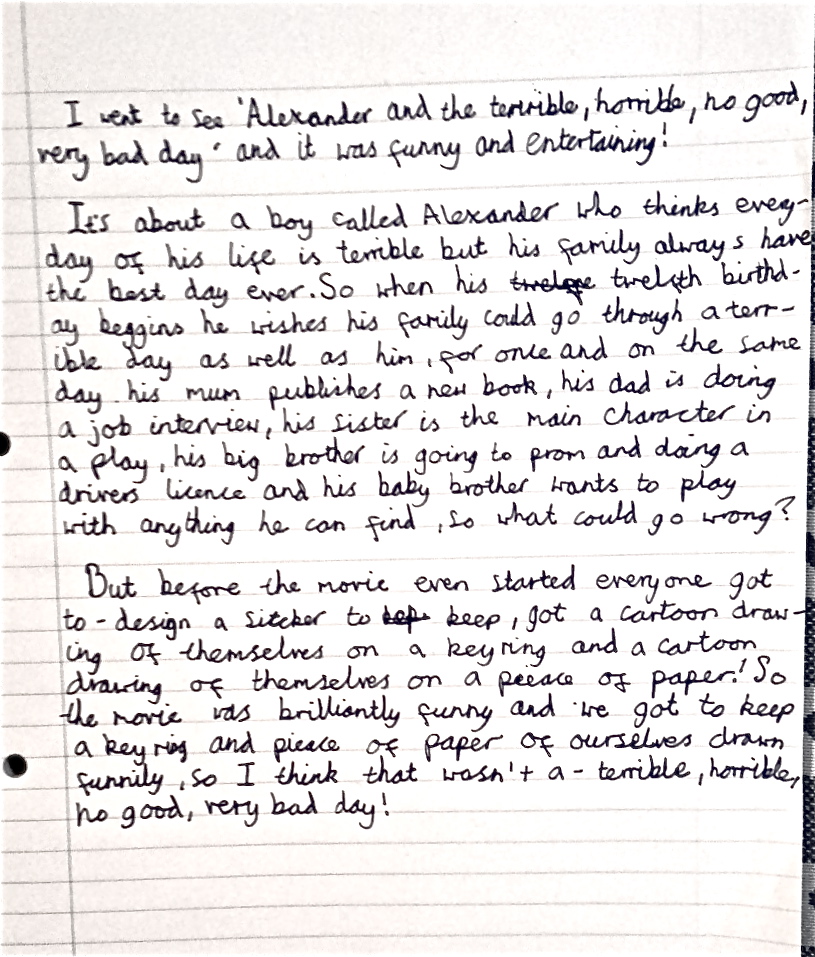 I went to see 'Alexander and the terrible, horrible, no good,
very bad day' and it was funny and entertaining!
It's about a boy called Alexander who thinks every-
day of his life is terrible but his family always have
the best day ever. So when his twelfge twelfth birthd-
ay beggins he wishes his family could go through a terr-
ible day as well as him, for once and on the same
day his mum publishes a new book, his dad is doing
a job interview, his sister is the main character in
a play, his big brother is going to prom and doing a
drivers licence and his baby brother wants to play
with anything he can find, so what could go wrong?
But before the movie even started everyone got
to - design a sitcker to kep keep, got a cartoon draw-
ing of themselves on a keyring and a cartoon
drawing of themselves on a peieace of paper! So
the movie was brilliantly funny and we got to keep
a keyring and pieace of paper of ourselves drawn
funnily, so I think that wasn't a - terrible, horrible,
no good, very bad day!